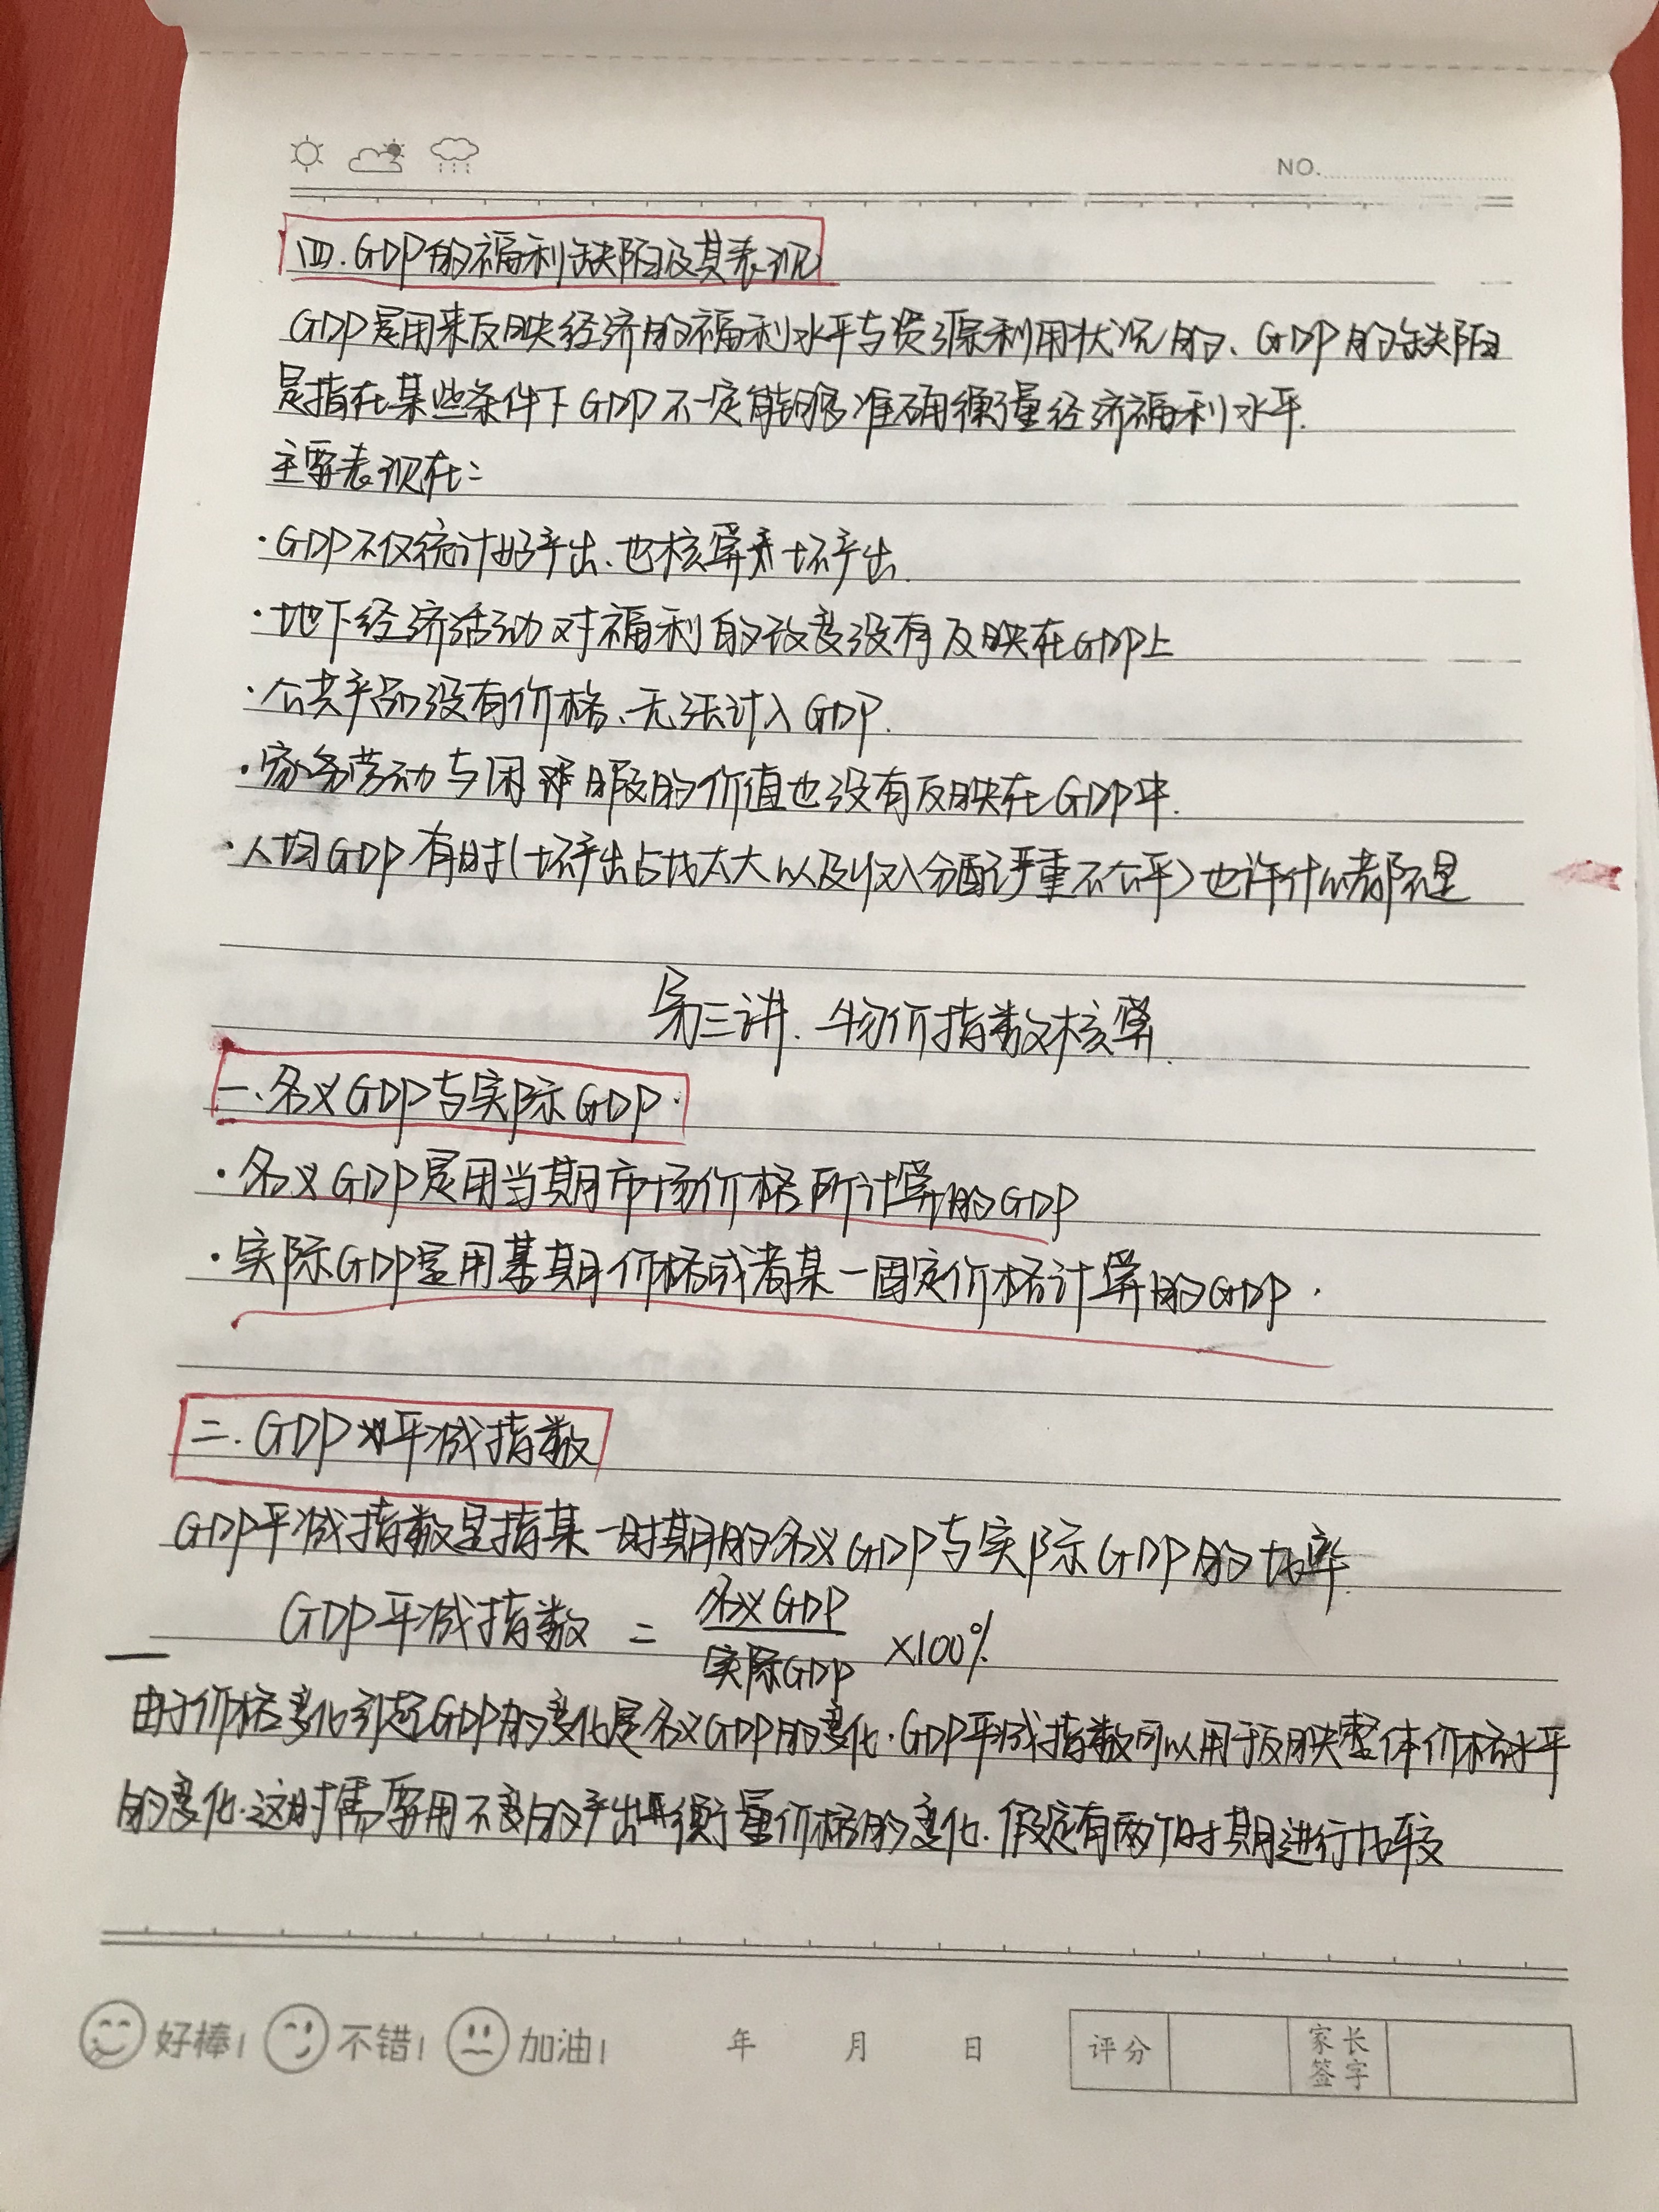 NO.
四.GDP的福利缺陷及其表现
GDP是用来反映经济的福利水平与资源利用状况的、GDP的缺陷
是指在某些条件下GDP不一定能够准确衡量经济福利水平.
主要表现在:
·GDP不仅统计好产出、也核算坏产出.
·地下经济活动对福利的改变没有反映在GDP上
·公共产品没有价格、无法计入GDP.
·家务劳动与闲暇的价值也没有反映在GDP中.
·人均GDP有时(坏产出占比太大以及收入分配严重不公平)也许什么都不是
第三讲.物价指数核算.
一.名义GDP与实际GDP.
·名义GDP是用当期市场价格所计算的GDP
·实际GDP是用基期价格或者某一固定价格计算的GDP.
二.GDP平减指数
GDP平减指数是指某一时期的名义GDP与实际GDP的比率.
GDP平减指数 = 名义GDP/实际GDP ×100%
由于价格变化引起GDP的变化是名义GDP的变化.GDP平减指数可以用于反映整体价格水平
的变化.这时需要用不变的产出衡量价格的变化.假定有两个时期进行比较
好棒! 不错! 加油! 年 月 日 评分 家长签字